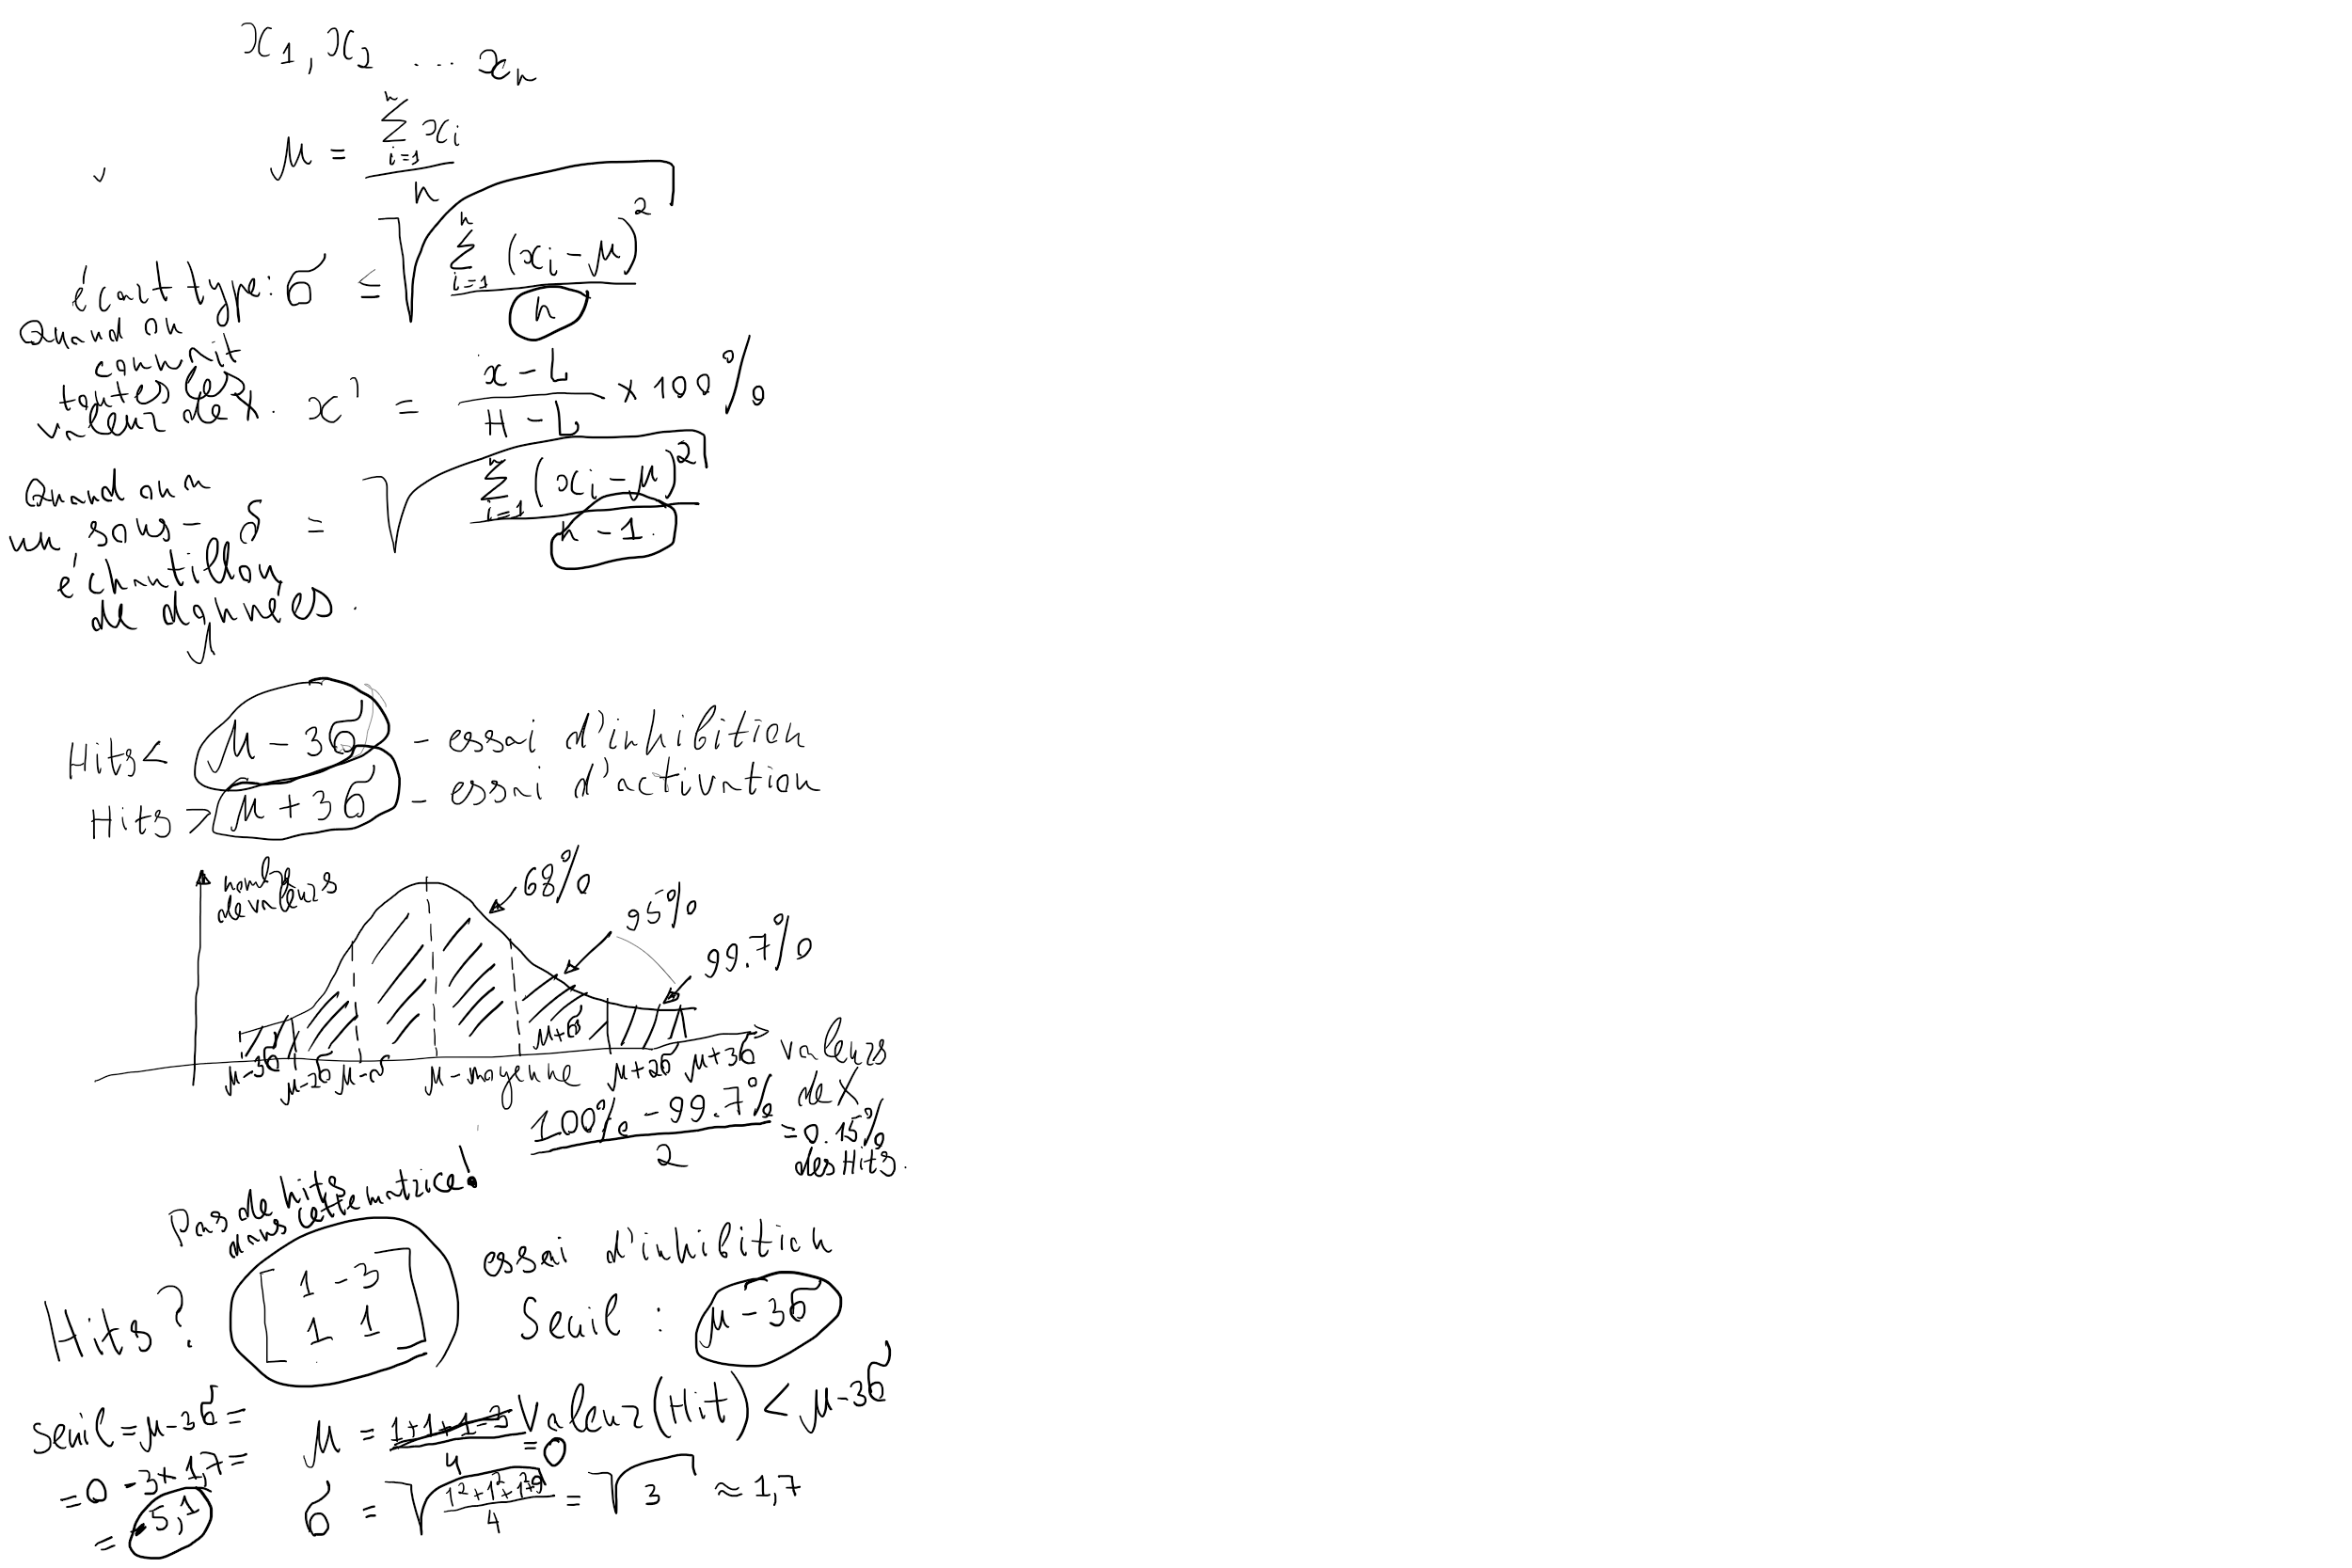 x₁, x₂ ... xₙ
μ = Σᵢ₌₁ⁿ xᵢ / n
écart type: σ = √( Σᵢ₌₁ⁿ (xᵢ − μ)² / n )
Quand on
connait
toutes les
valeurs de x.
x' = (x − L) / (H − L) × 100%
Quand on a
un sous-
échantillon
de données.
δ = √( Σᵢ₌₁ⁿ (xᵢ − μ)² / (n − 1) )
Hits < μ − 3σ – essai d'inhibition
Hits > μ + 3σ – essai d'activation
nombre
de valeurs
68%
95%
99.7%
μ−3σ μ−2σ μ−σ μ – moyenne μ+σ μ+2σ μ+3σ
valeurs
de X
(100% − 99.7%) / 2 = 0.15%
des Hits.
Pas de hits
dans cette matrice!
Hits?
[ 1 −3
1 1 ]
essai d'inhibition
Seuil : μ − 3σ
Valeur (Hit) < μ − 3σ
Seuil = μ − 3σ =
= 0 − 3 * 1,7 =
= −5,1
μ = (1+1+1−3) / 4 = 0
σ = √( (1² + 1² + 1² + 9) / 4 ) = √3 ≈ 1,7